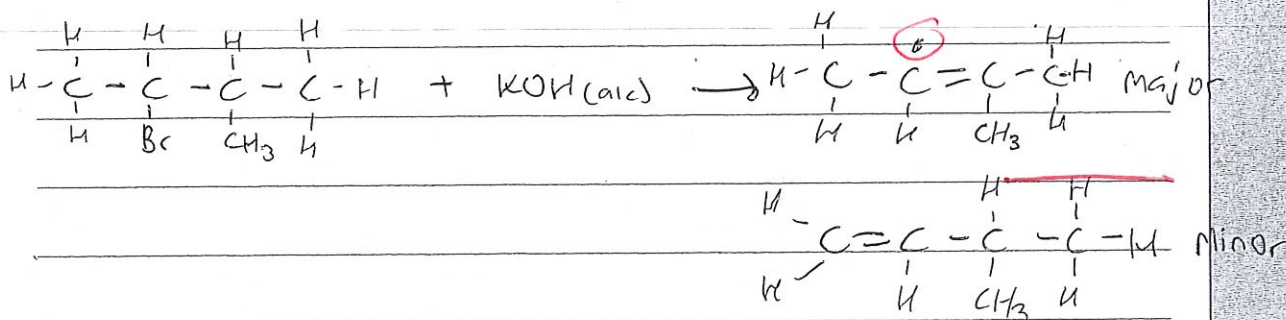 H H H H H H
H - C - C - C - C - H + KOH (alc) → H - C - C = C - C - H Major
H Br CH₃ H H H CH₃ H
H H H
C = C - C - C - H Minor
H H CH₃ H